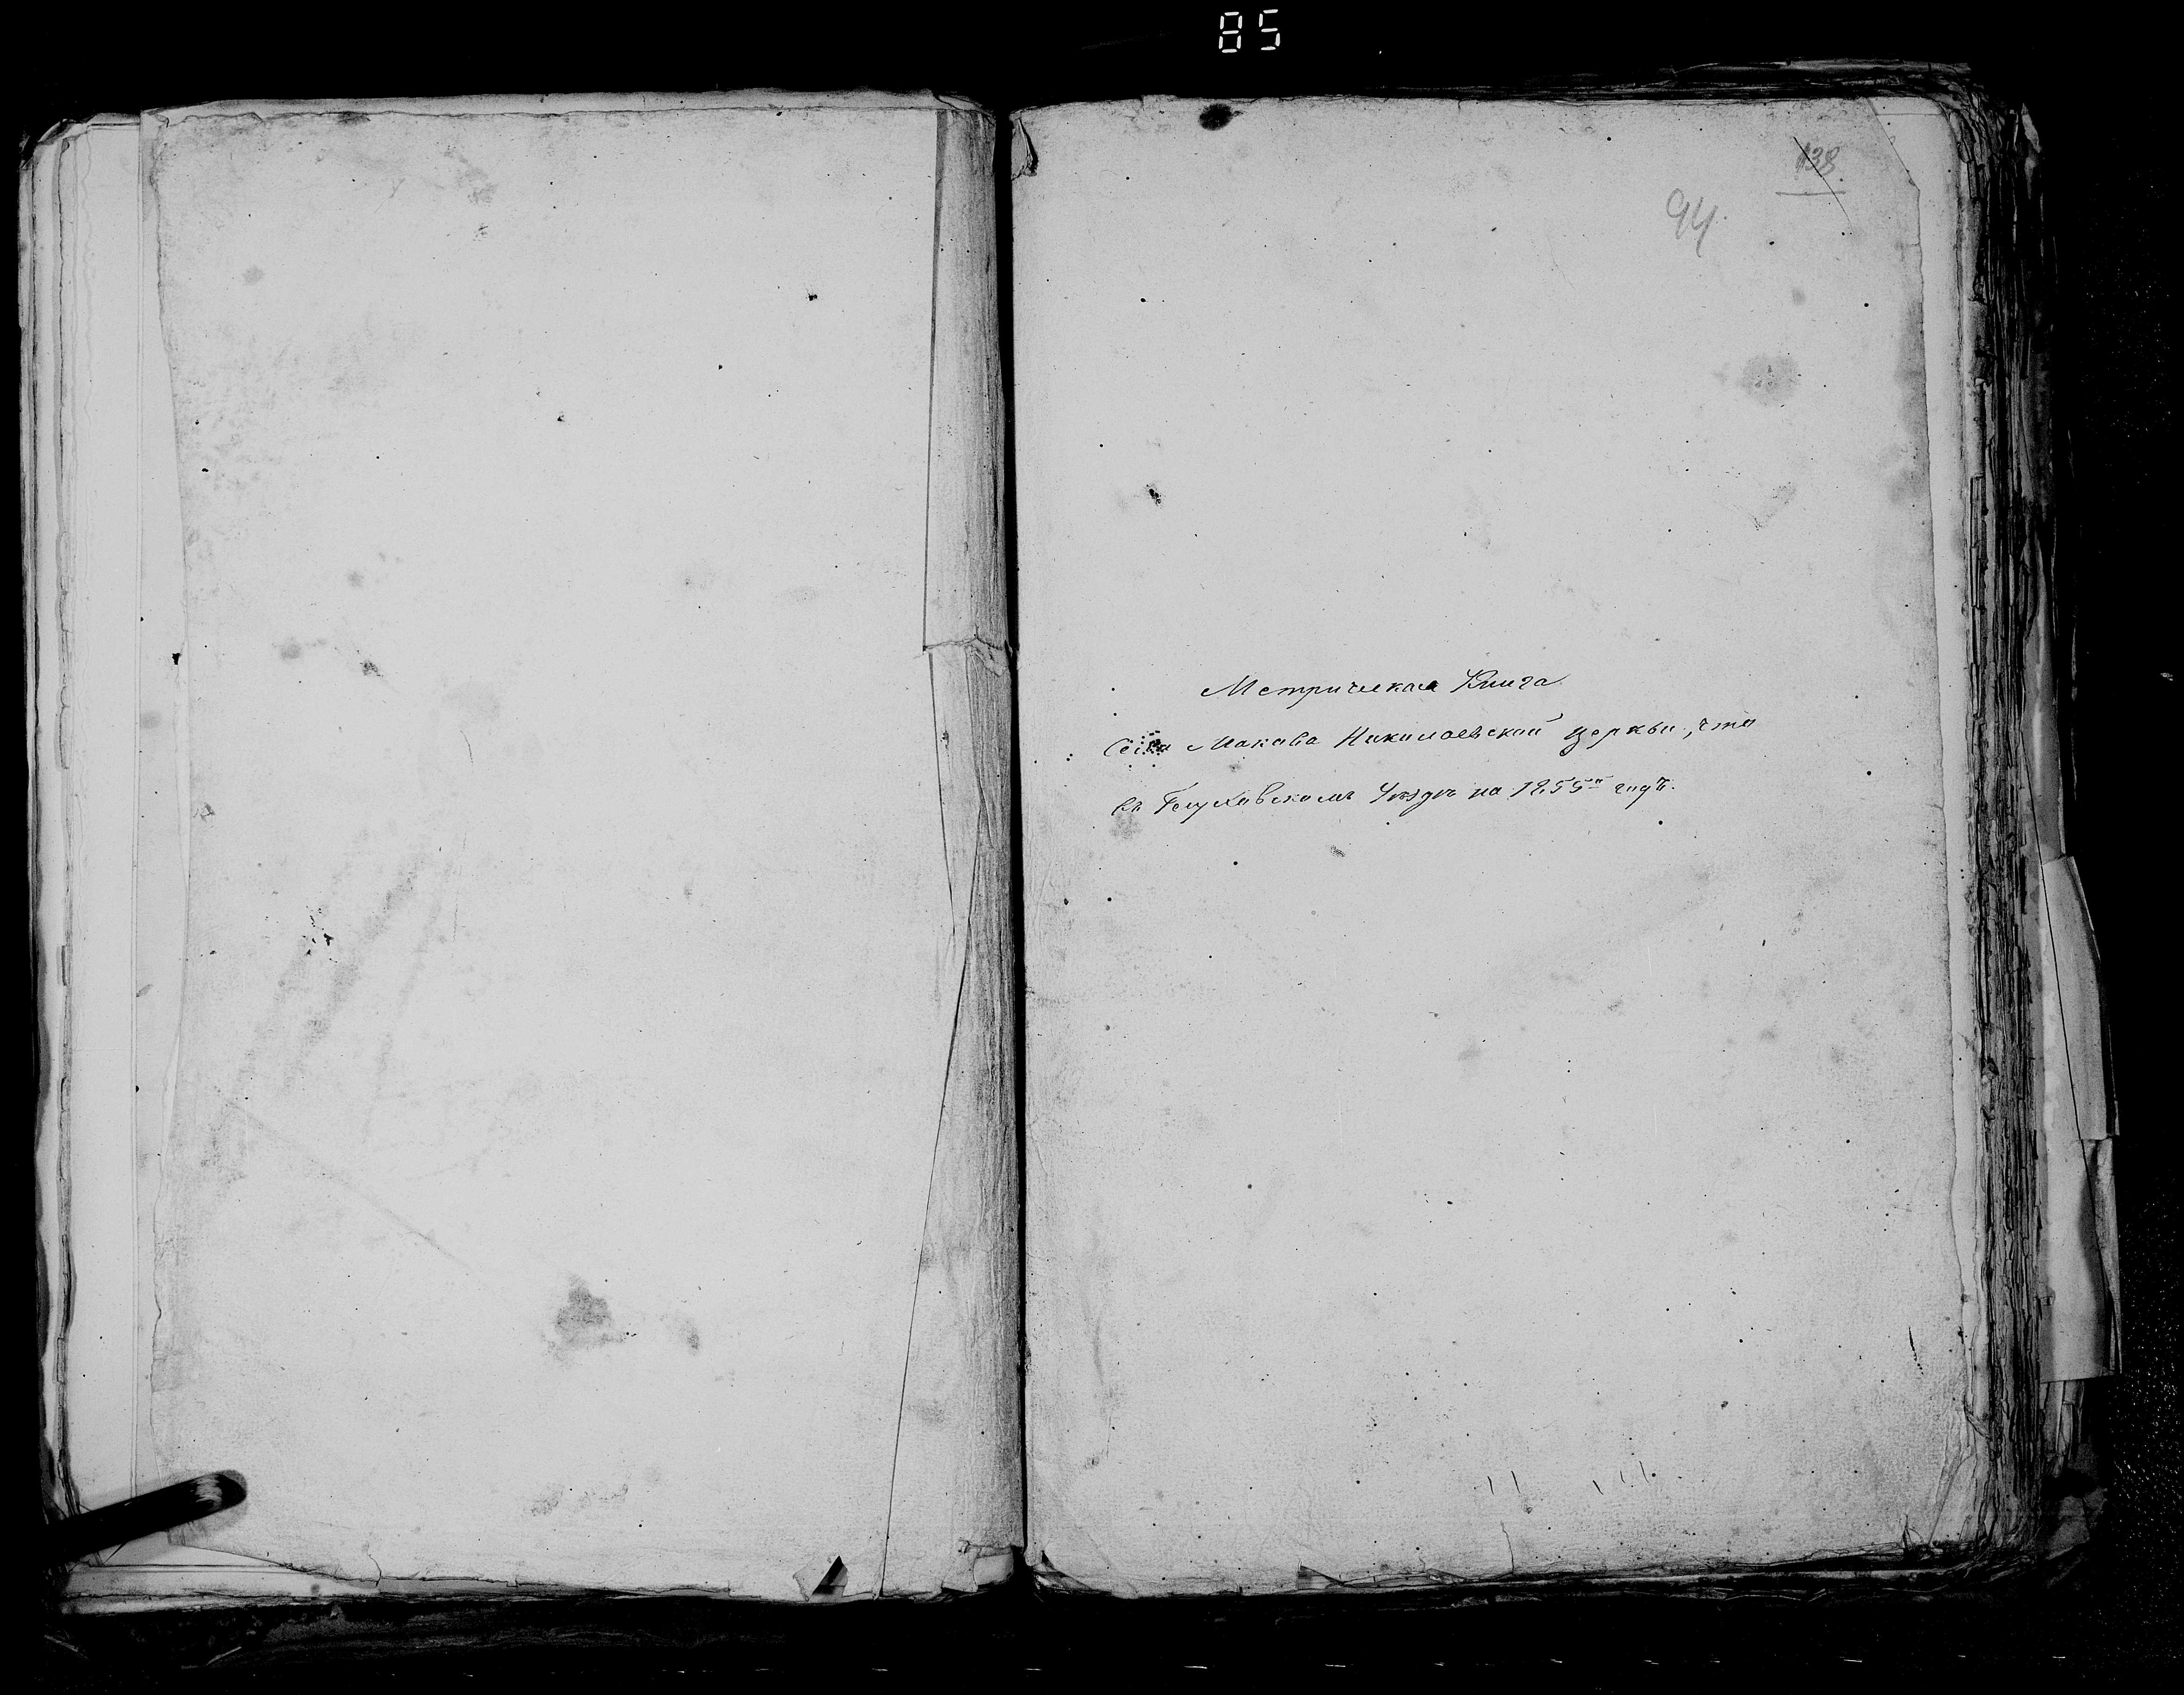 85
138
94
Метрическая Книга
Села Макова Николаевской церкви, что
въ Глуховскомъ Уѣздѣ на 1855й годъ.